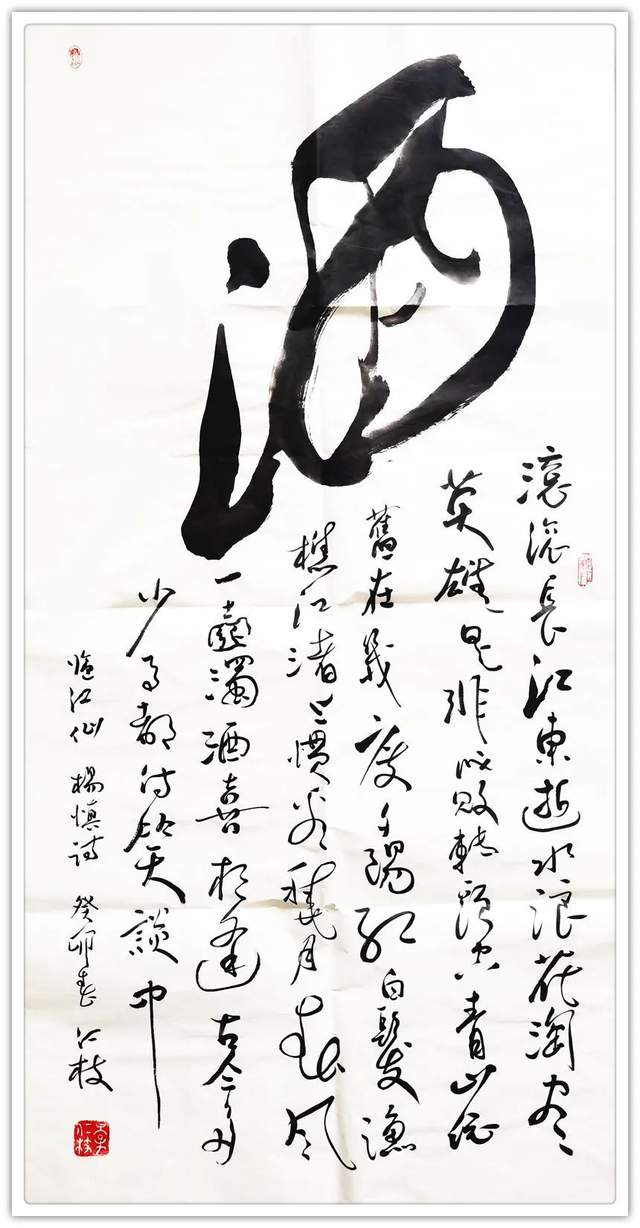 酒
滚滚長江東逝水浪花淘尽
英雄是非成敗轉頭空青山依
舊在幾度夕陽紅白髮漁
樵江渚上慣看秋月春風
一壺濁酒喜相逢古今多
少事都付笑談中
臨江仙 楊慎詩 癸卯春 仁枝
李仁枝